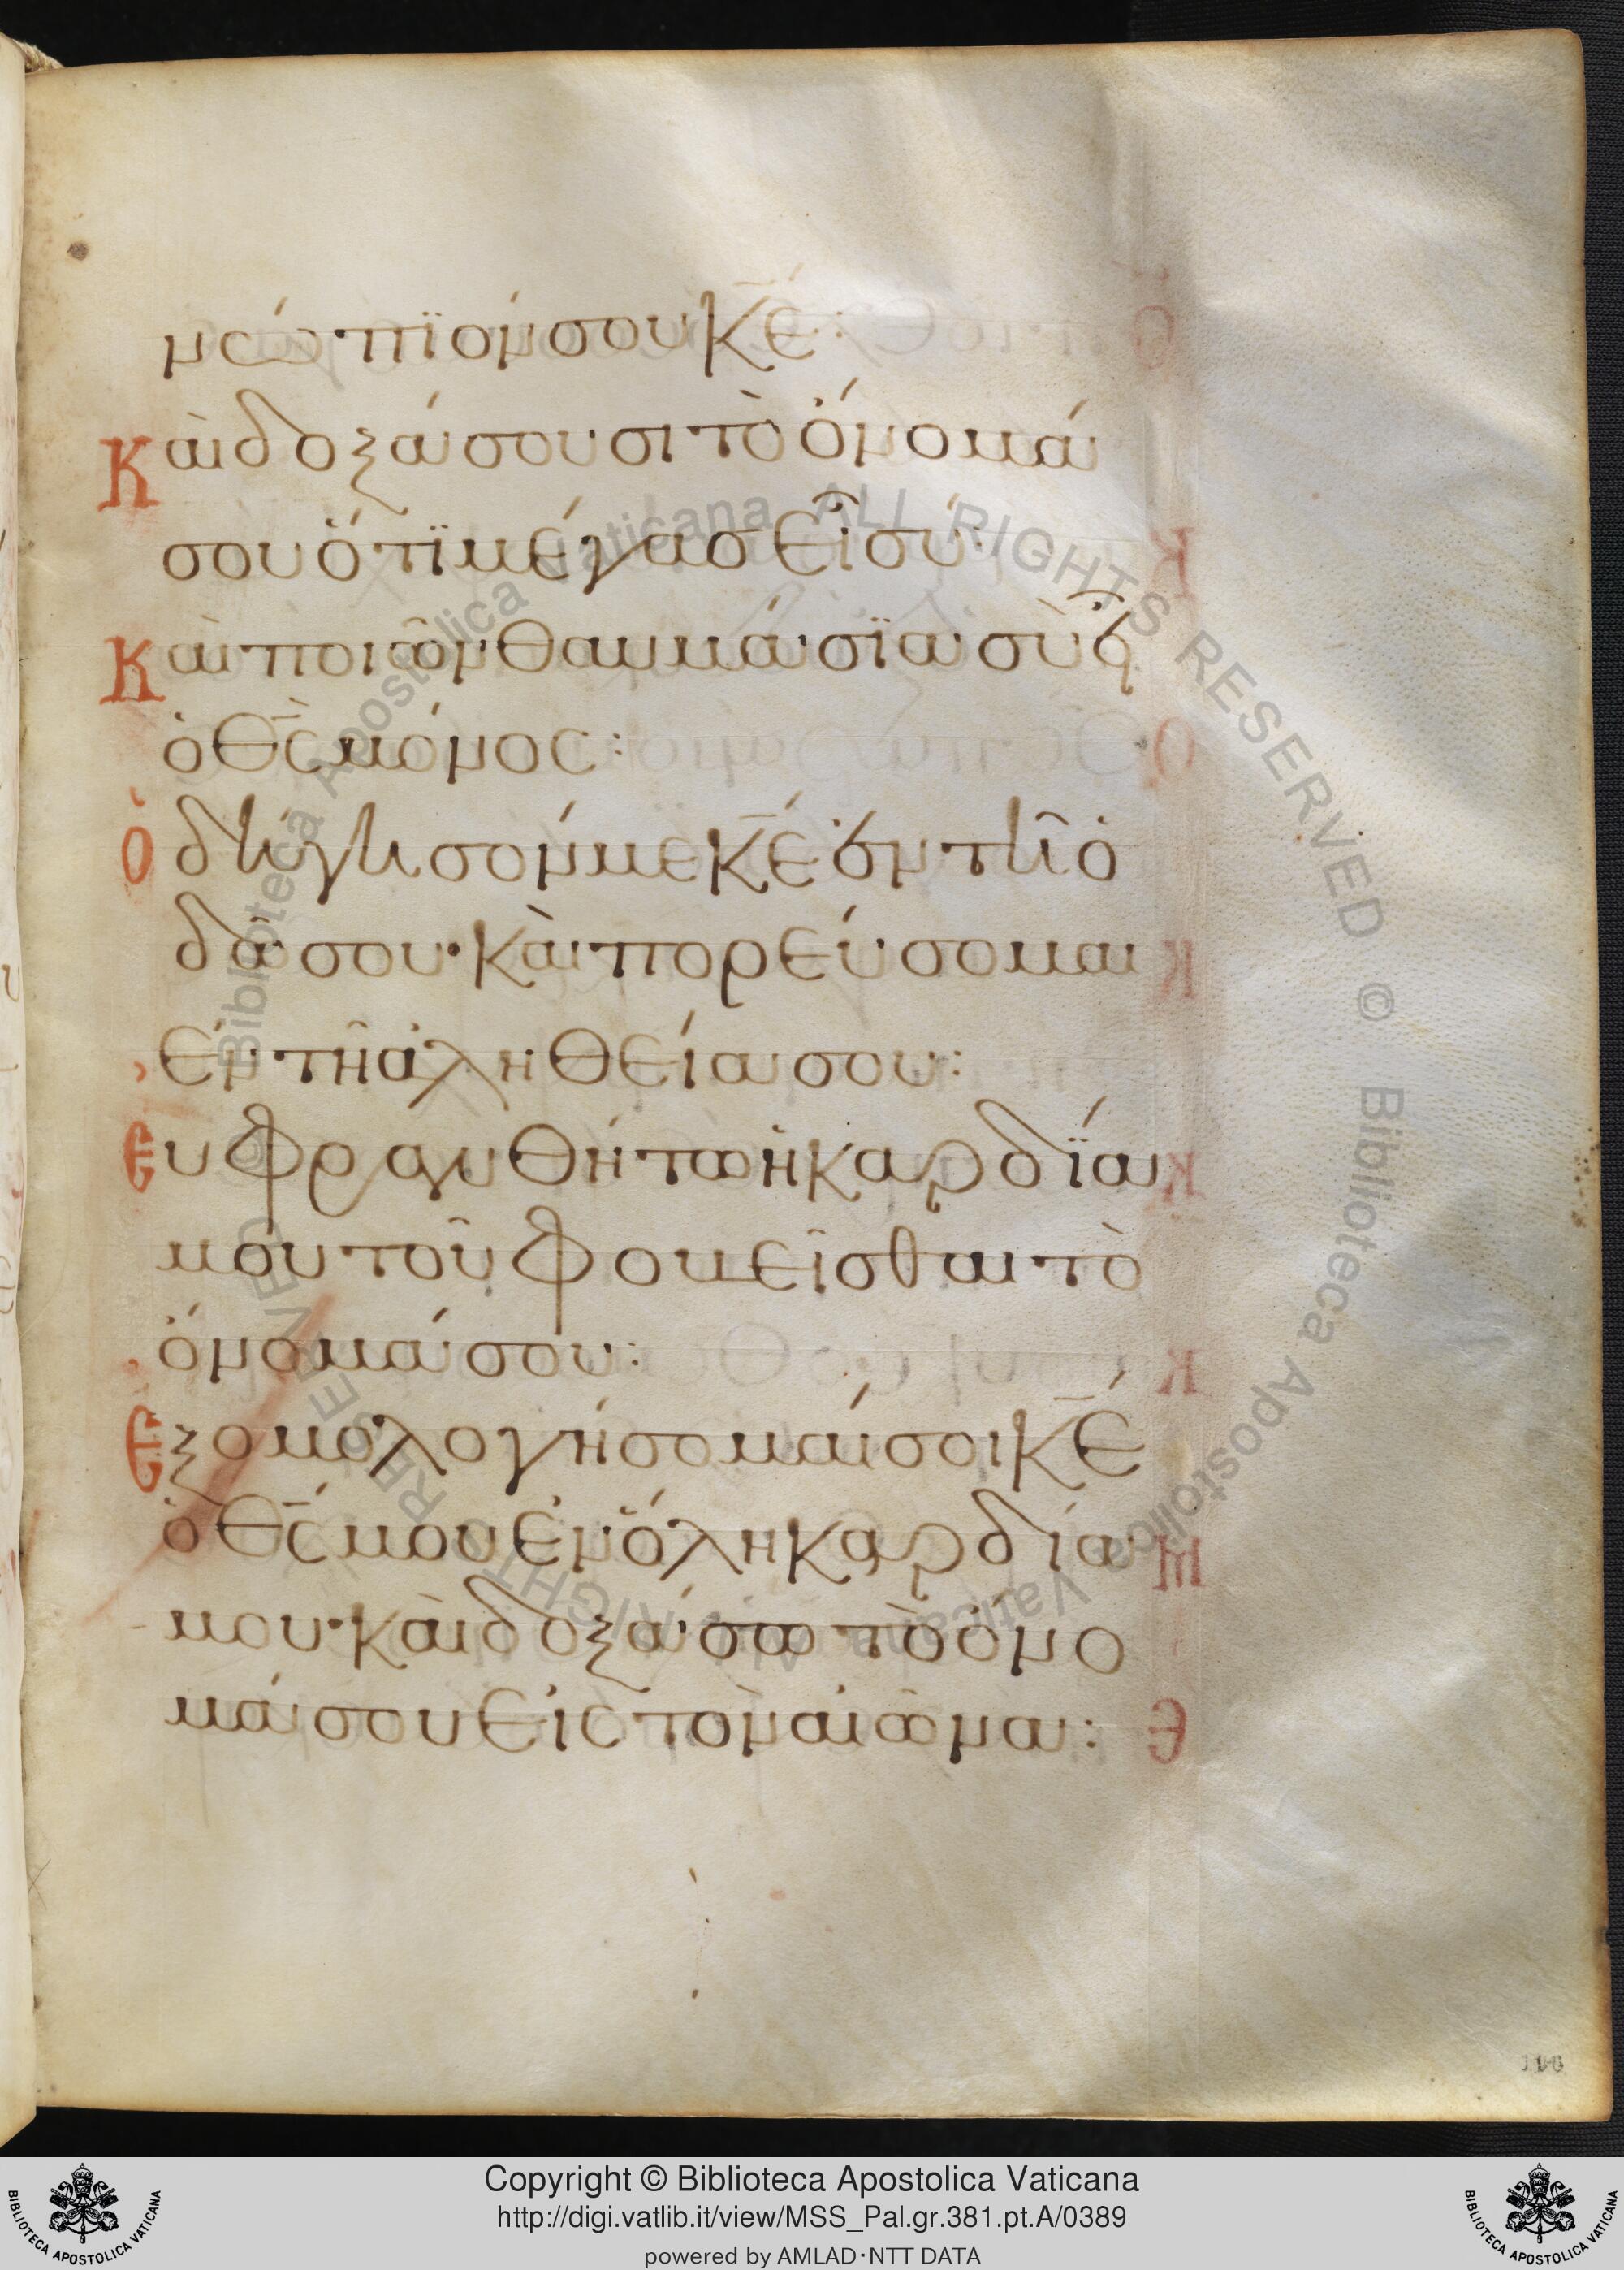 νώπϊόν σου κ̅ε̅:
Καὶ δοξάσουσι τὸ ὄνομά
σου ὅτϊ μέγας εἶ σύ:
Καὶ ποιῶν θαυμάσϊα σὺ εἶ
ὁ θ̅ς̅ μόνος:
Ὁδήγησόν με κ̅ε̅ ἐν τῆ ὁ
δῶ σου· καὶ πορεύσομαι
ἐν τῆ ἀληθεία σου:
Εὐφρανθήτω ἡ καρδϊα
μου τοῦ φοβεῖσθαι τὸ
ὄνομά σου:
Ἐξομολογήσομαί σοι κ̅ε̅
ὁ θ̅ς̅ μου ἐν ὅλη καρδία
μου· καὶ δοξάσω τὸ ὄνο
μά σου εἰς τὸν αἰῶνα:
Copyright © Biblioteca Apostolica Vaticana
http://digi.vatlib.it/view/MSS_Pal.gr.381.pt.A/0389
powered by AMLAD·NTT DATA
BIBLIOTECA APOSTOLICA VATICANA
BIBLIOTECA APOSTOLICA VATICANA
Biblioteca Apostolica Vaticana ALL RIGHTS RESERVED ©
Biblioteca Apostolica Vaticana ALL RIGHTS RESERVED ©